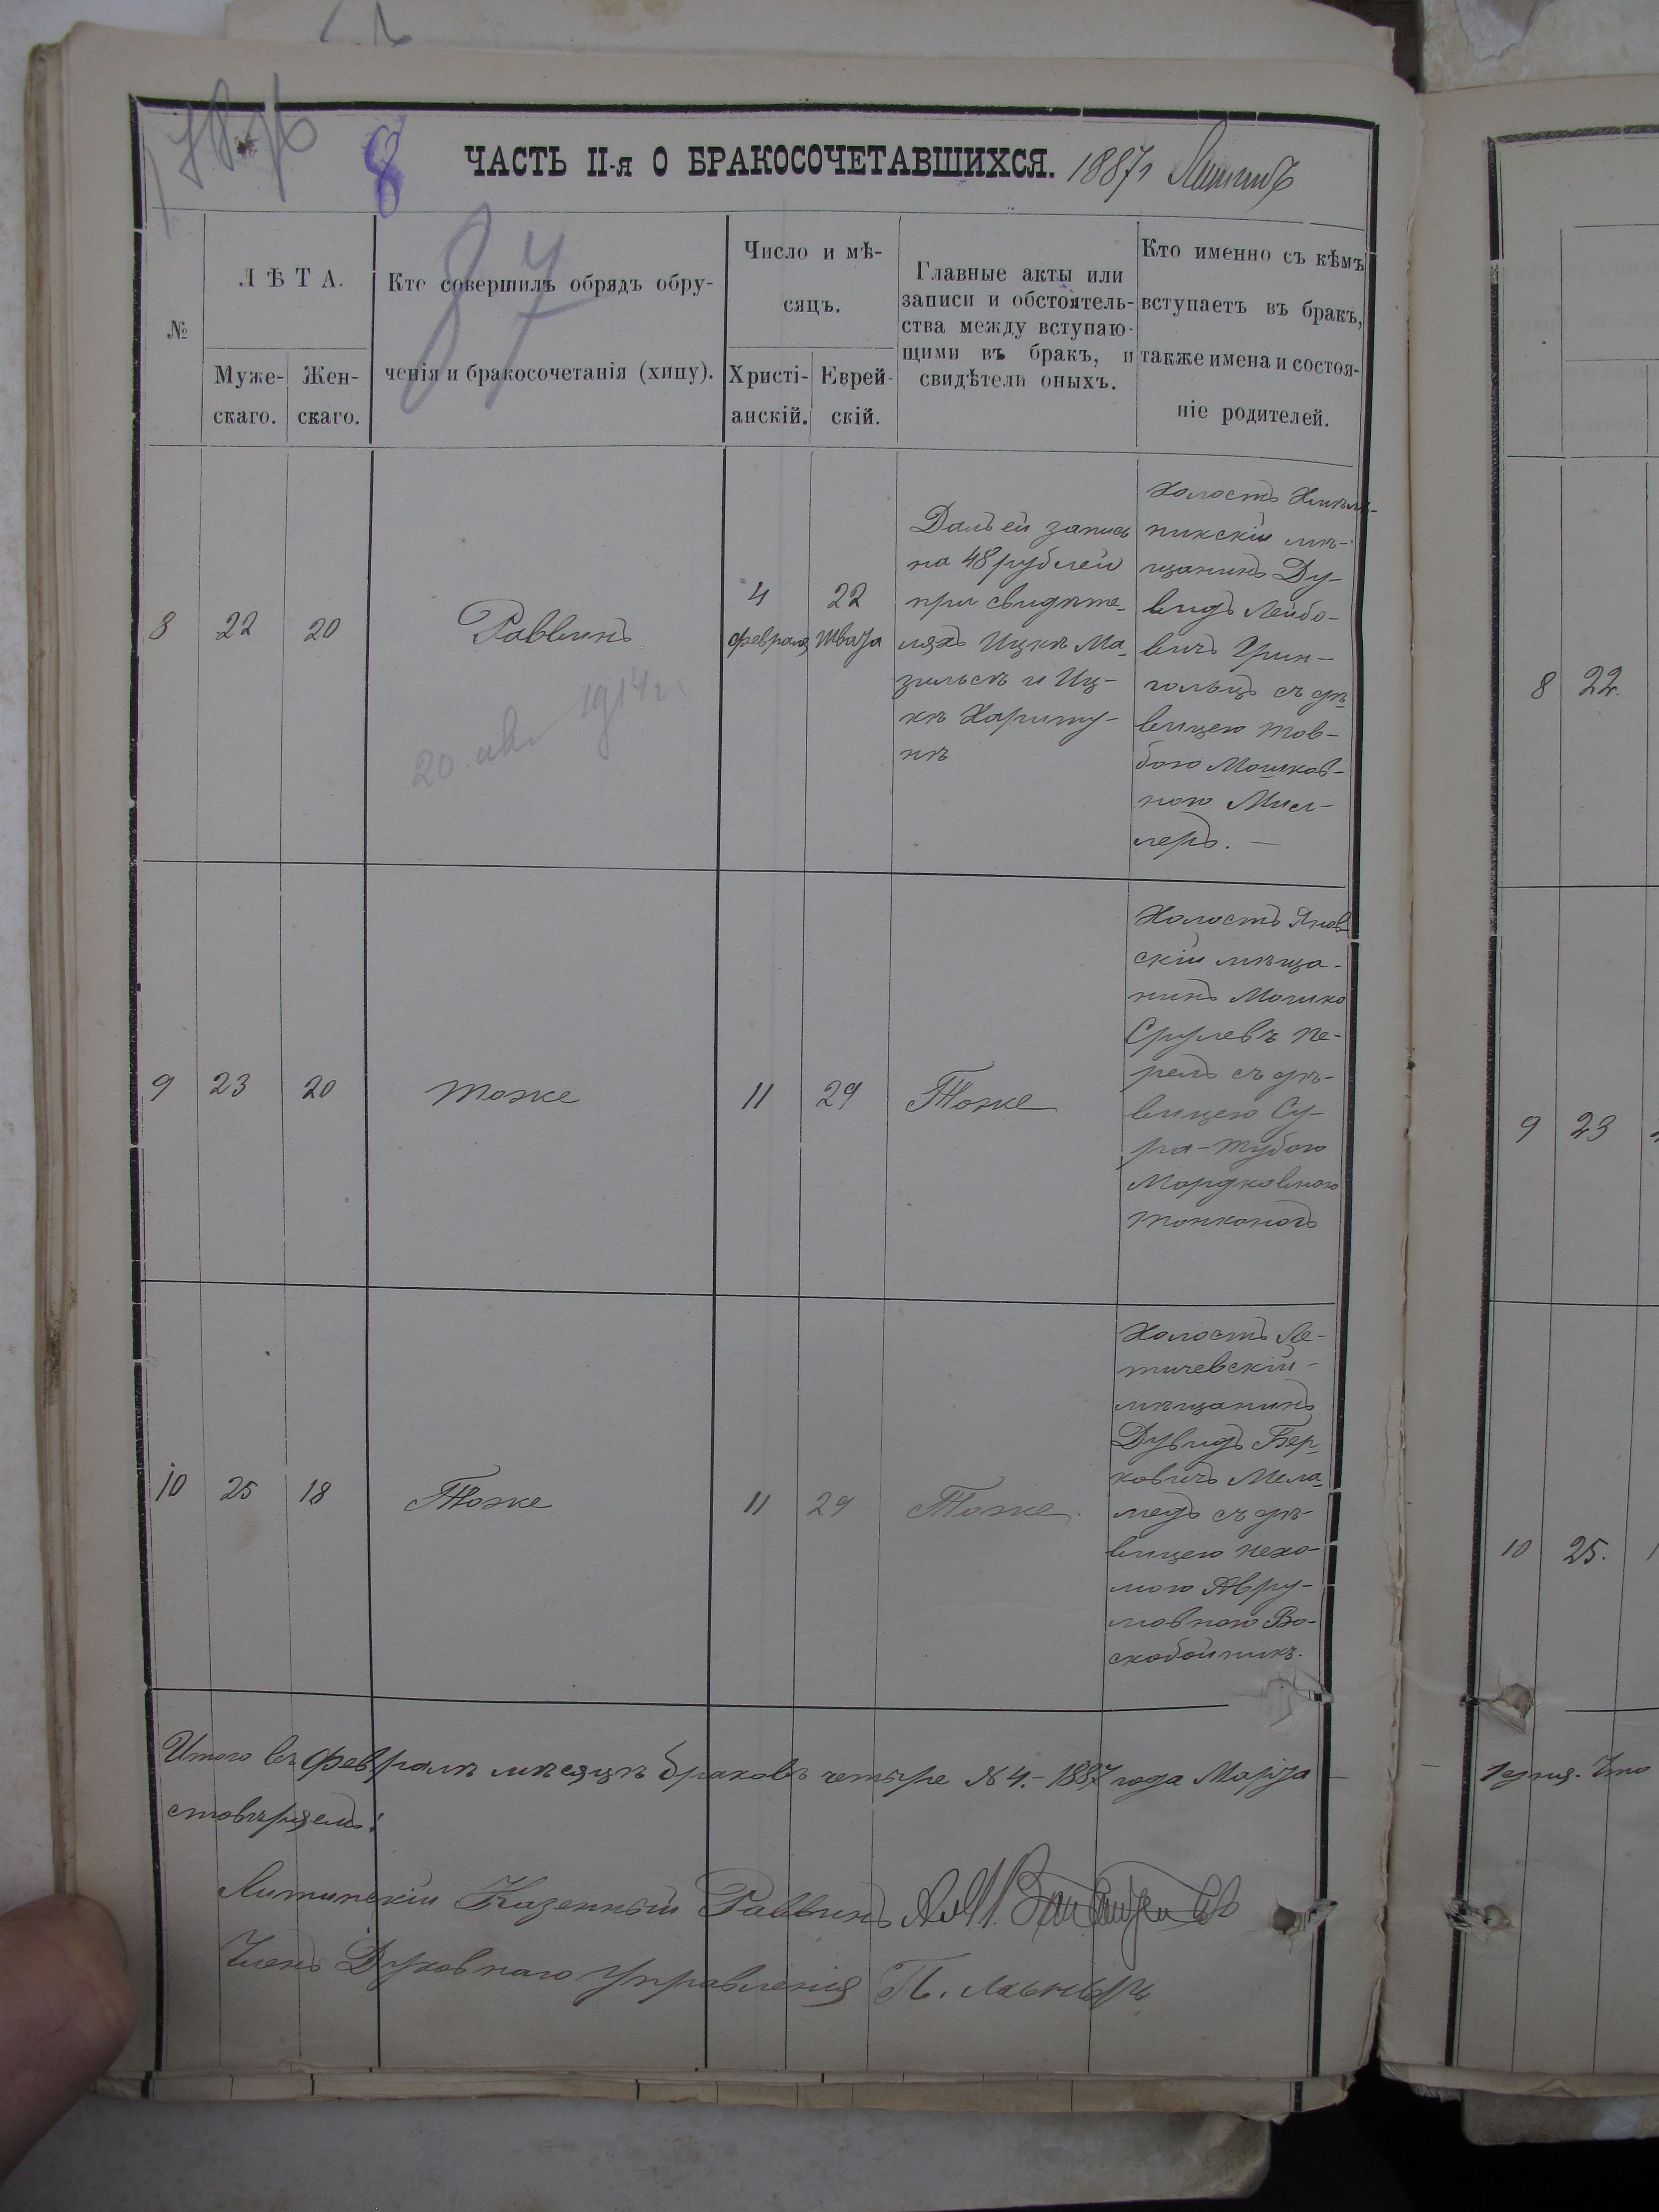 8
ЧАСТЬ II-я О БРАКОСОЧЕТАВШИХСЯ. 1887 г Литинъ
87
№
ЛѢТА.
Муже-
скаго.
Жен-
скаго.
Кто совершилъ обрядъ обру-
ченія и бракосочетанія (хипу).
Число и мѣ-
сяцъ.
Христі-
анскій.
Еврей-
скій.
Главные акты или
записи и обстоятель-
ства между вступаю-
щими въ бракъ, и
свидѣтели оныхъ.
Кто именно съ кѣмъ
вступаетъ въ бракъ,
также имена и состоя-
ніе родителей.
8
22
20
Раввинъ
4
февраля
22
Швата
Далъ ей запись
на 48 рублей
при свидѣте-
ляхъ Ицкѣ Ма-
зильскѣ и Иц-
кѣ
Холостъ Хмѣль-
никскій мѣ-
щанинъ Ду-
видъ Лейбо-
вичъ Грин-
гольцъ съ дѣ-
вицею Тов-
бою Мошков-
ною Мил-
леръ. —
20 1914 г
9
23
20
Тоже
11
29
Тоже
Холостъ Янов-
скій мѣща-
нинъ Мошко
Срулевъ Пе-
рель съ дѣ-
вицею Су-
ра-Тубою
Мордковною
Тонконогъ
10
25
18
Тоже
11
29
Тоже.
Холостъ Ле-
тичевскій
мѣщанинъ
Дувидъ Бер-
ковичъ Мела-
медъ съ дѣ-
вицею Нехо-
мою Авру-
мовною Во-
скобойникъ.
Итого въ Февралѣ мѣсяцѣ браковъ четыре № 4. — 1887 года Марта
Литинскій Казенный Раввинъ
Членъ Духовнаго Управленія
8
22.
9
23
10
25.
1 дня. Что